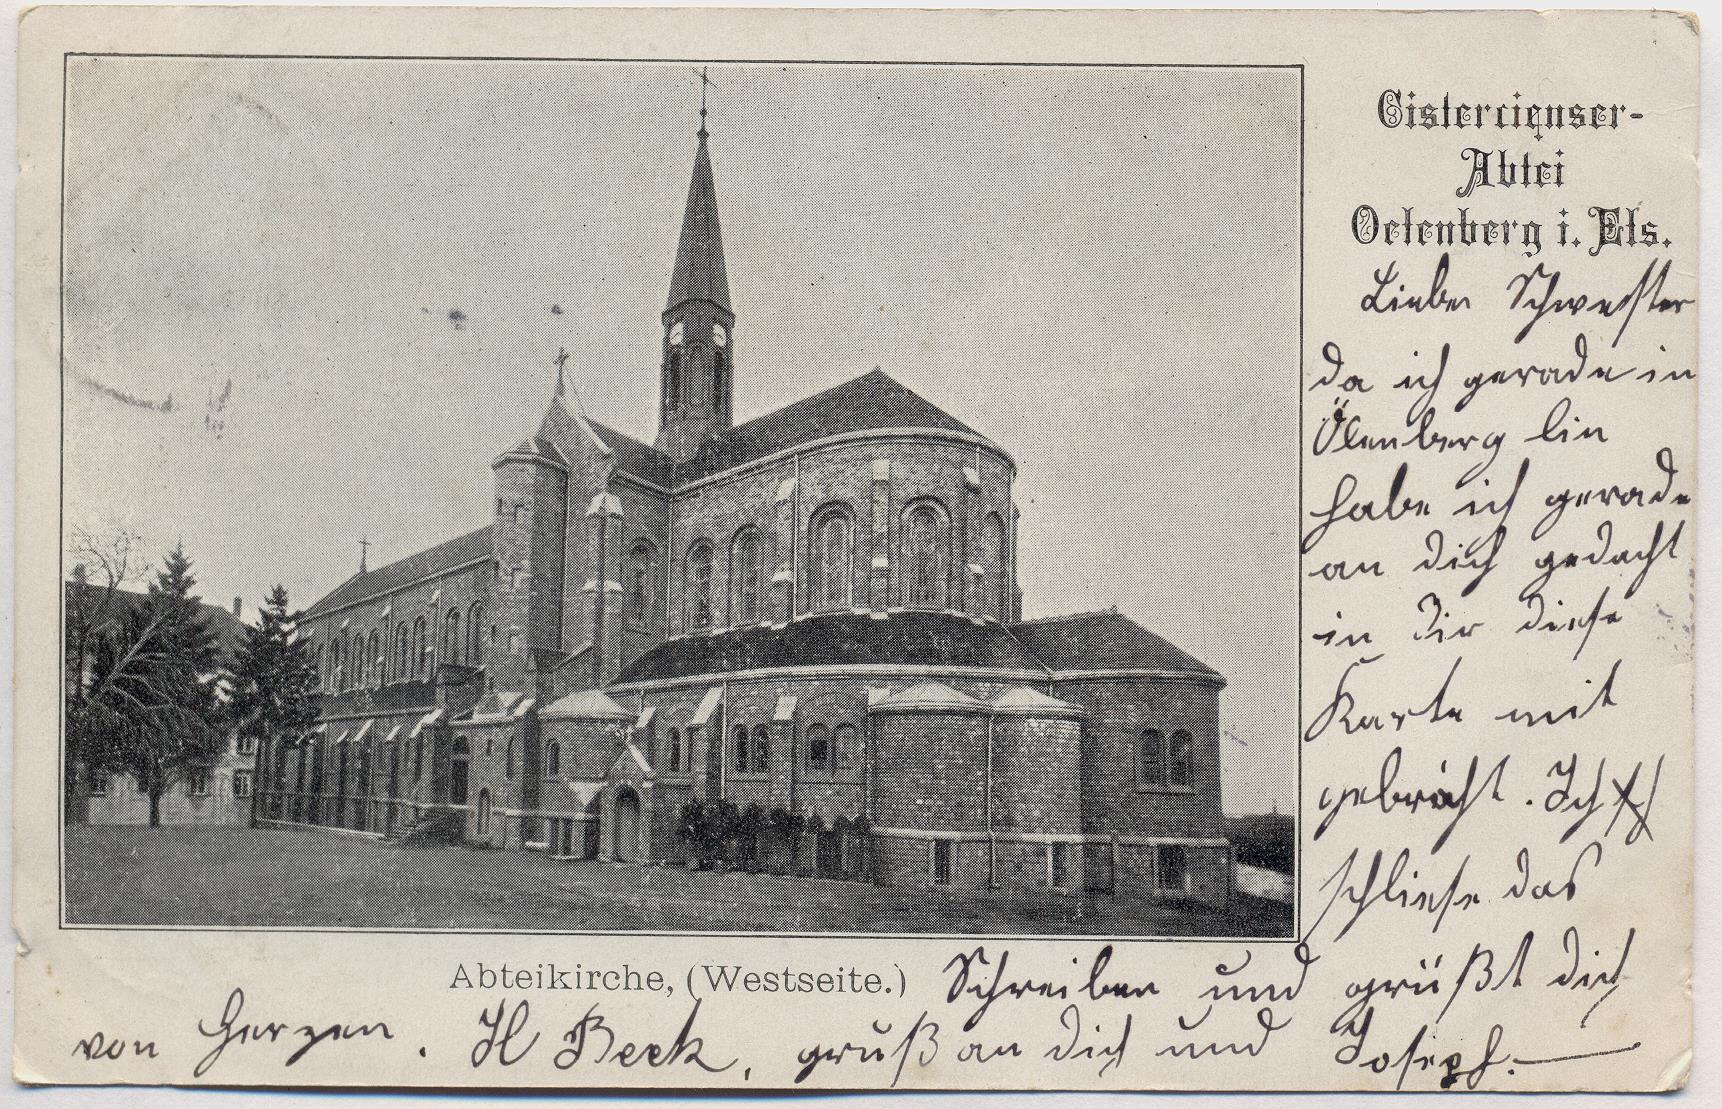 Cistercienser-
Abtei
Oelenberg i. Els.
Liebe Schwester
da ich gerade in
Ölenberg bin
habe ich gerade
an dich gedacht
in dir diese
Karte mit
gebracht. Ich
schliese das
Abteikirche, (Westseite.) Schreiben und grüßt dich
von Herzen. H Beck, gruß an dich und Joseph.